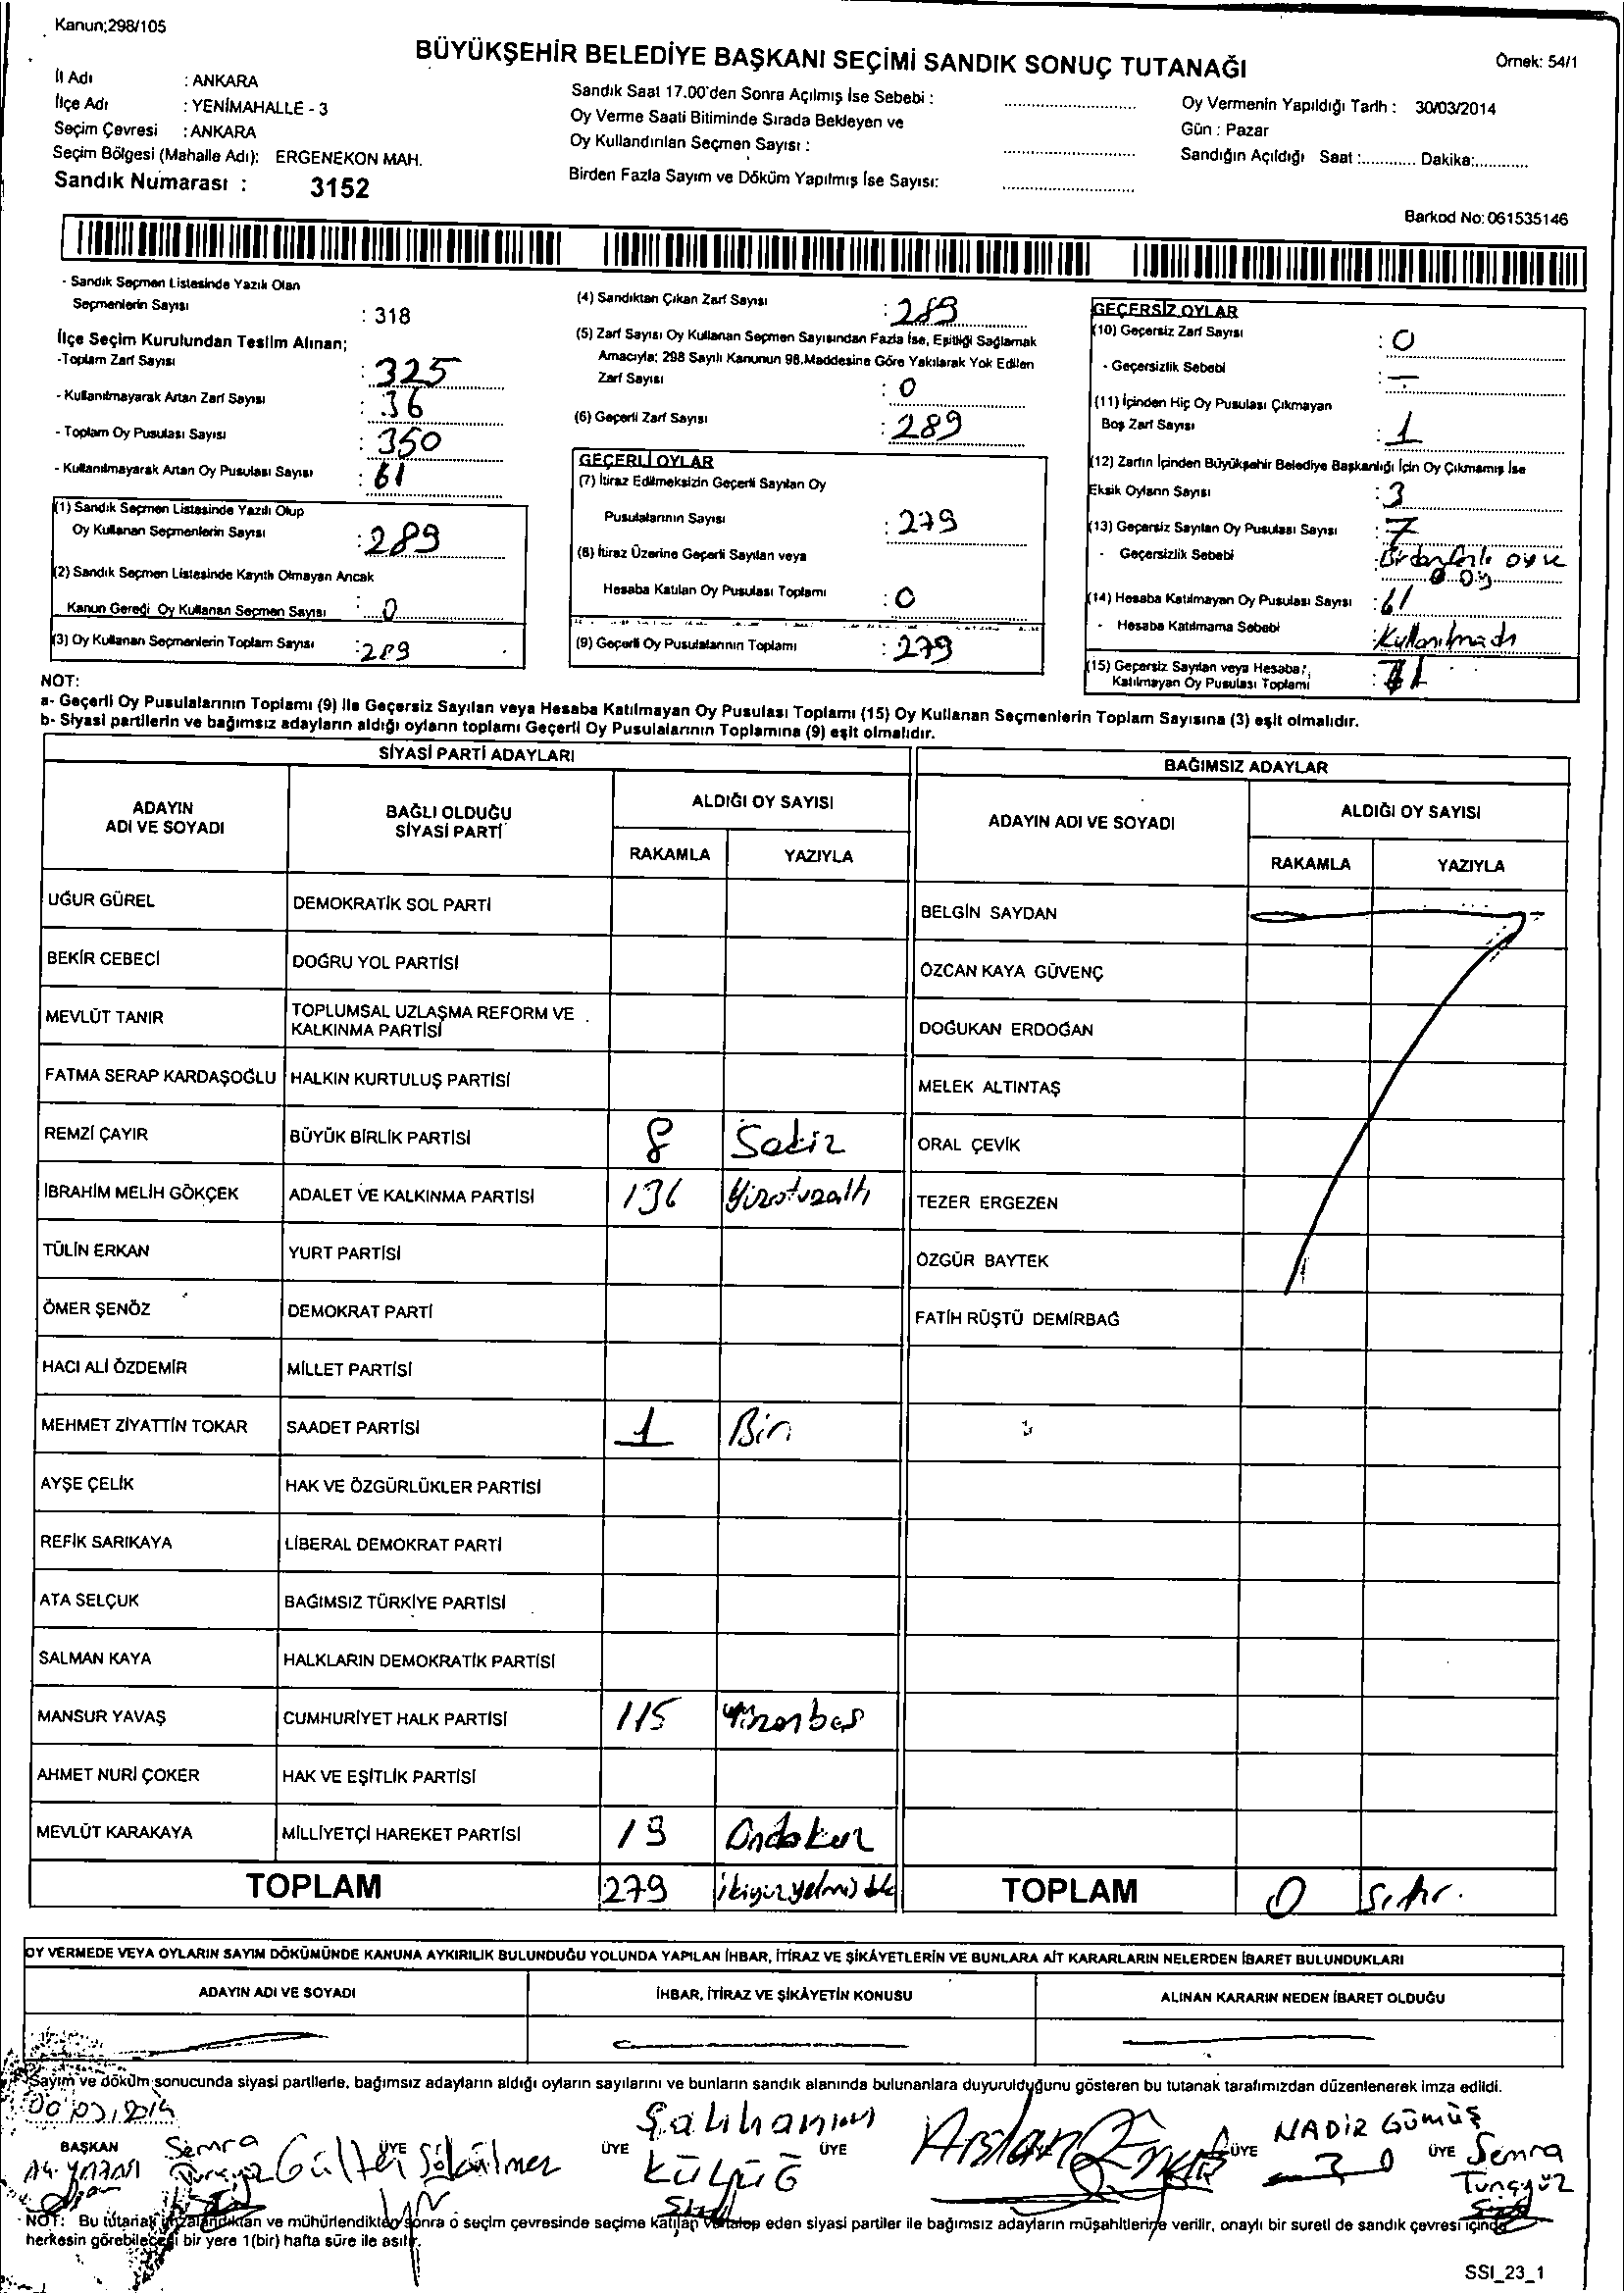 Kanun;298/105
BÜYÜKŞEHİR BELEDİYE BAŞKANI SEÇİMİ SANDIK SONUÇ TUTANAĞI
Örnek: 54/1
İl Adı : ANKARA
İlçe Adı : YENİMAHALLE - 3
Seçim Çevresi : ANKARA
Seçim Bölgesi (Mahalle Adı): ERGENEKON MAH.
Sandık Numarası : 3152
Sandık Saat 17.00'den Sonra Açılmış İse Sebebi :
Oy Verme Saati Bitiminde Sırada Bekleyen ve
Oy Kullandırılan Seçmen Sayısı :
Birden Fazla Sayım ve Döküm Yapılmış İse Sayısı:
Oy Vermenin Yapıldığı Tarih : 30/03/2014
Gün : Pazar
Sandığın Açıldığı Saat :............ Dakika:............
Barkod No: 061535146
- Sandık Seçmen Listesinde Yazılı Olan
Seçmenlerin Sayısı : 318
İlçe Seçim Kurulundan Teslim Alınan;
-Toplam Zarf Sayısı : 325
- Kullanılmayarak Artan Zarf Sayısı : 36
- Toplam Oy Pusulası Sayısı : 350
- Kullanılmayarak Artan Oy Pusulası Sayısı : 61
(1) Sandık Seçmen Listesinde Yazılı Olup
Oy Kullanan Seçmenlerin Sayısı : 289
(2) Sandık Seçmen Listesinde Kayıtlı Olmayan Ancak
Kanun Gereği Oy Kullanan Seçmen Sayısı : 0
(3) Oy Kullanan Seçmenlerin Toplam Sayısı : 289
(4) Sandıktan Çıkan Zarf Sayısı : 289
(5) Zarf Sayısı Oy Kullanan Seçmen Sayısından Fazla İse, Eşitliği Sağlamak
Amacıyla; 298 Sayılı Kanunun 98.Maddesine Göre Yakılarak Yok Edilen
Zarf Sayısı : 0
(6) Geçerli Zarf Sayısı : 289
GEÇERLİ OYLAR
(7) İtiraz Edilmeksizin Geçerli Sayılan Oy
Pusulalarının Sayısı : 279
(8) İtiraz Üzerine Geçerli Sayılan veya
Hesaba Katılan Oy Pusulası Toplamı : 0
(9) Geçerli Oy Pusulalarının Toplamı : 279
GEÇERSİZ OYLAR
(10) Geçersiz Zarf Sayısı : 0
- Geçersizlik Sebebi : -
(11) İçinden Hiç Oy Pusulası Çıkmayan
Boş Zarf Sayısı : 1
(12) Zarfın İçinden Büyükşehir Belediye Başkanlığı İçin Oy Çıkmamış İse
Eksik Oyların Sayısı : 3
(13) Geçersiz Sayılan Oy Pusulası Sayısı : 7
- Geçersizlik Sebebi :
oy
(14) Hesaba Katılmayan Oy Pusulası Sayısı : 61
- Hesaba Katılmama Sebebi : Kullanılmadı
(15) Geçersiz Sayılan veya Hesaba
Katılmayan Oy Pusulası Toplamı :
NOT:
a- Geçerli Oy Pusulalarının Toplamı (9) ile Geçersiz Sayılan veya Hesaba Katılmayan Oy Pusulası Toplamı (15) Oy Kullanan Seçmenlerin Toplam Sayısına (3) eşit olmalıdır.
b- Siyasi partilerin ve bağımsız adayların aldığı oyların toplamı Geçerli Oy Pusulalarının Toplamına (9) eşit olmalıdır.
SİYASİ PARTİ ADAYLARI
BAĞIMSIZ ADAYLAR
ADAYIN ADI VE SOYADI
BAĞLI OLDUĞU SİYASİ PARTİ
ALDIĞI OY SAYISI
RAKAMLA YAZIYLA
ADAYIN ADI VE SOYADI
ALDIĞI OY SAYISI
RAKAMLA YAZIYLA
UĞUR GÜREL DEMOKRATİK SOL PARTİ BELGİN SAYDAN
BEKİR CEBECİ DOĞRU YOL PARTİSİ ÖZCAN KAYA GÜVENÇ
MEVLÜT TANIR TOPLUMSAL UZLAŞMA REFORM VE KALKINMA PARTİSİ DOĞUKAN ERDOĞAN
FATMA SERAP KARDAŞOĞLU HALKIN KURTULUŞ PARTİSİ MELEK ALTINTAŞ
REMZİ ÇAYIR BÜYÜK BİRLİK PARTİSİ 8 Sekiz ORAL ÇEVİK
İBRAHİM MELİH GÖKÇEK ADALET VE KALKINMA PARTİSİ 136 Yüzotuzaltı TEZER ERGEZEN
TÜLİN ERKAN YURT PARTİSİ ÖZGÜR BAYTEK
ÖMER ŞENÖZ DEMOKRAT PARTİ FATİH RÜŞTÜ DEMİRBAĞ
HACI ALİ ÖZDEMİR MİLLET PARTİSİ
MEHMET ZİYATTİN TOKAR SAADET PARTİSİ 1 Bir
AYŞE ÇELİK HAK VE ÖZGÜRLÜKLER PARTİSİ
REFİK SARIKAYA LİBERAL DEMOKRAT PARTİ
ATA SELÇUK BAĞIMSIZ TÜRKİYE PARTİSİ
SALMAN KAYA HALKLARIN DEMOKRATİK PARTİSİ
MANSUR YAVAŞ CUMHURİYET HALK PARTİSİ 115 Yüzonbeş
AHMET NURİ ÇOKER HAK VE EŞİTLİK PARTİSİ
MEVLÜT KARAKAYA MİLLİYETÇİ HAREKET PARTİSİ 19 Ondokuz
TOPLAM 279 TOPLAM 0 Sıfır.
OY VERMEDE VEYA OYLARIN SAYIM DÖKÜMÜNDE KANUNA AYKIRILIK BULUNDUĞU YOLUNDA YAPILAN İHBAR, İTİRAZ VE ŞİKÂYETLERİN VE BUNLARA AİT KARARLARIN NELERDEN İBARET BULUNDUKLARI
ADAYIN ADI VE SOYADI İHBAR, İTİRAZ VE ŞİKÂYETİN KONUSU ALINAN KARARIN NEDEN İBARET OLDUĞU
Sayım ve döküm sonucunda siyasi partilerle, bağımsız adayların aldığı oyların sayılarını ve bunların sandık alanında bulunanlara duyurulduğunu gösteren bu tutanak tarafımızdan düzenlenerek imza edildi.
BAŞKAN ÜYE ÜYE ÜYE ÜYE ÜYE
Semra Gülten Arslan NADİR GÜMÜŞ Semra Tunçyüz
NOT: Bu tutanak imzalandıktan ve mühürlendikten sonra o seçim çevresinde seçime katılan ve talep eden siyasi partiler ile bağımsız adayların müşahitlerine verilir, onaylı bir sureti de sandık çevresi içinde
herkesin görebileceği bir yere 1(bir) hafta süre ile asılır.
SSI_23_1